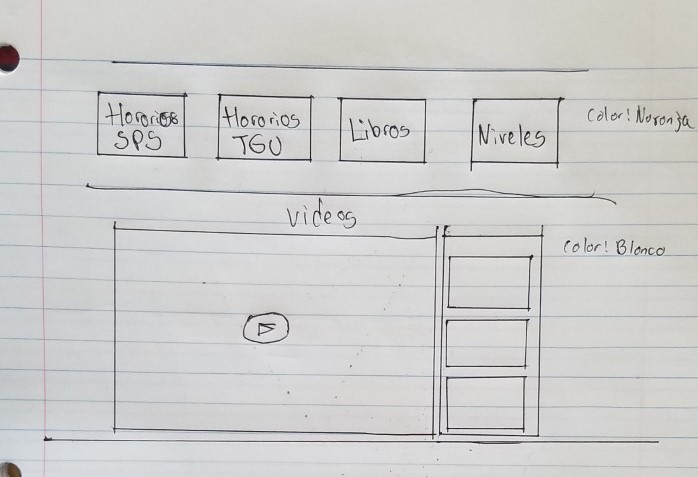 Horarios
SPS
Horarios
TGU
Libros
Niveles
Color: Naranja
Videos
Color: Blanco